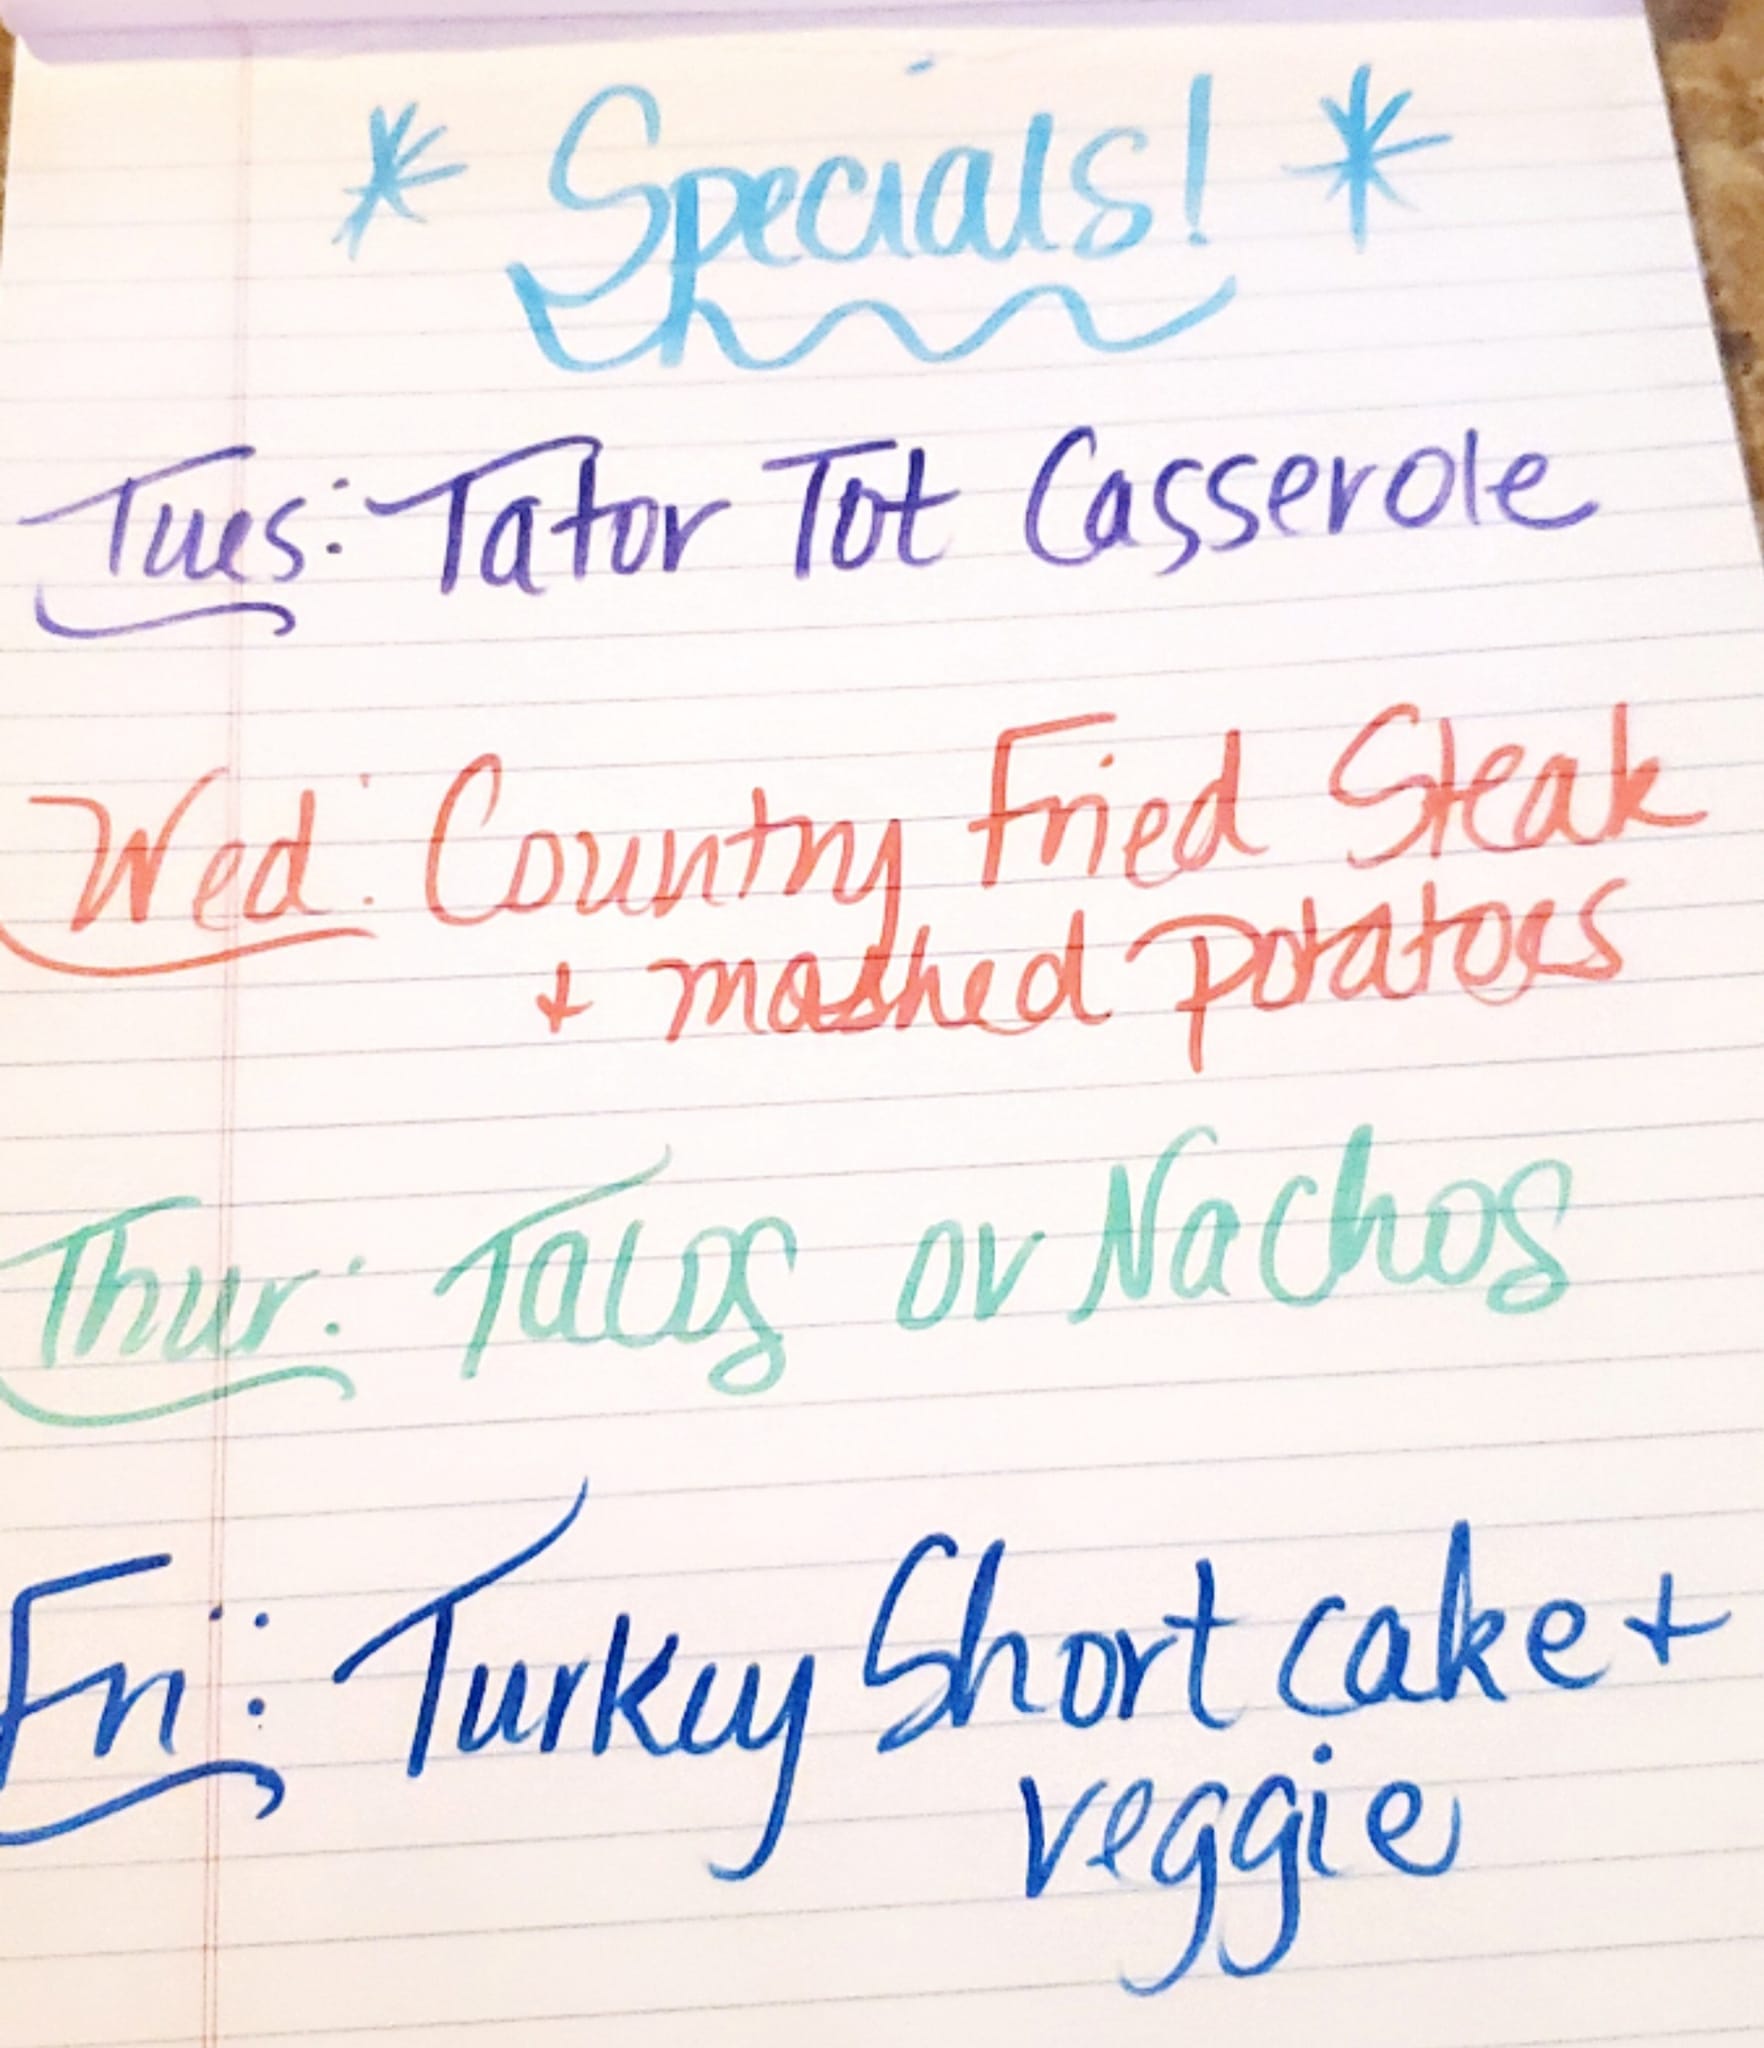 * Specials! *
Tues: Tator Tot Casserole
Wed: Country Fried Steak
+ mashed potatoes
Thur: Tacos or Nachos
Fri: Turkey Short cake +
veggie